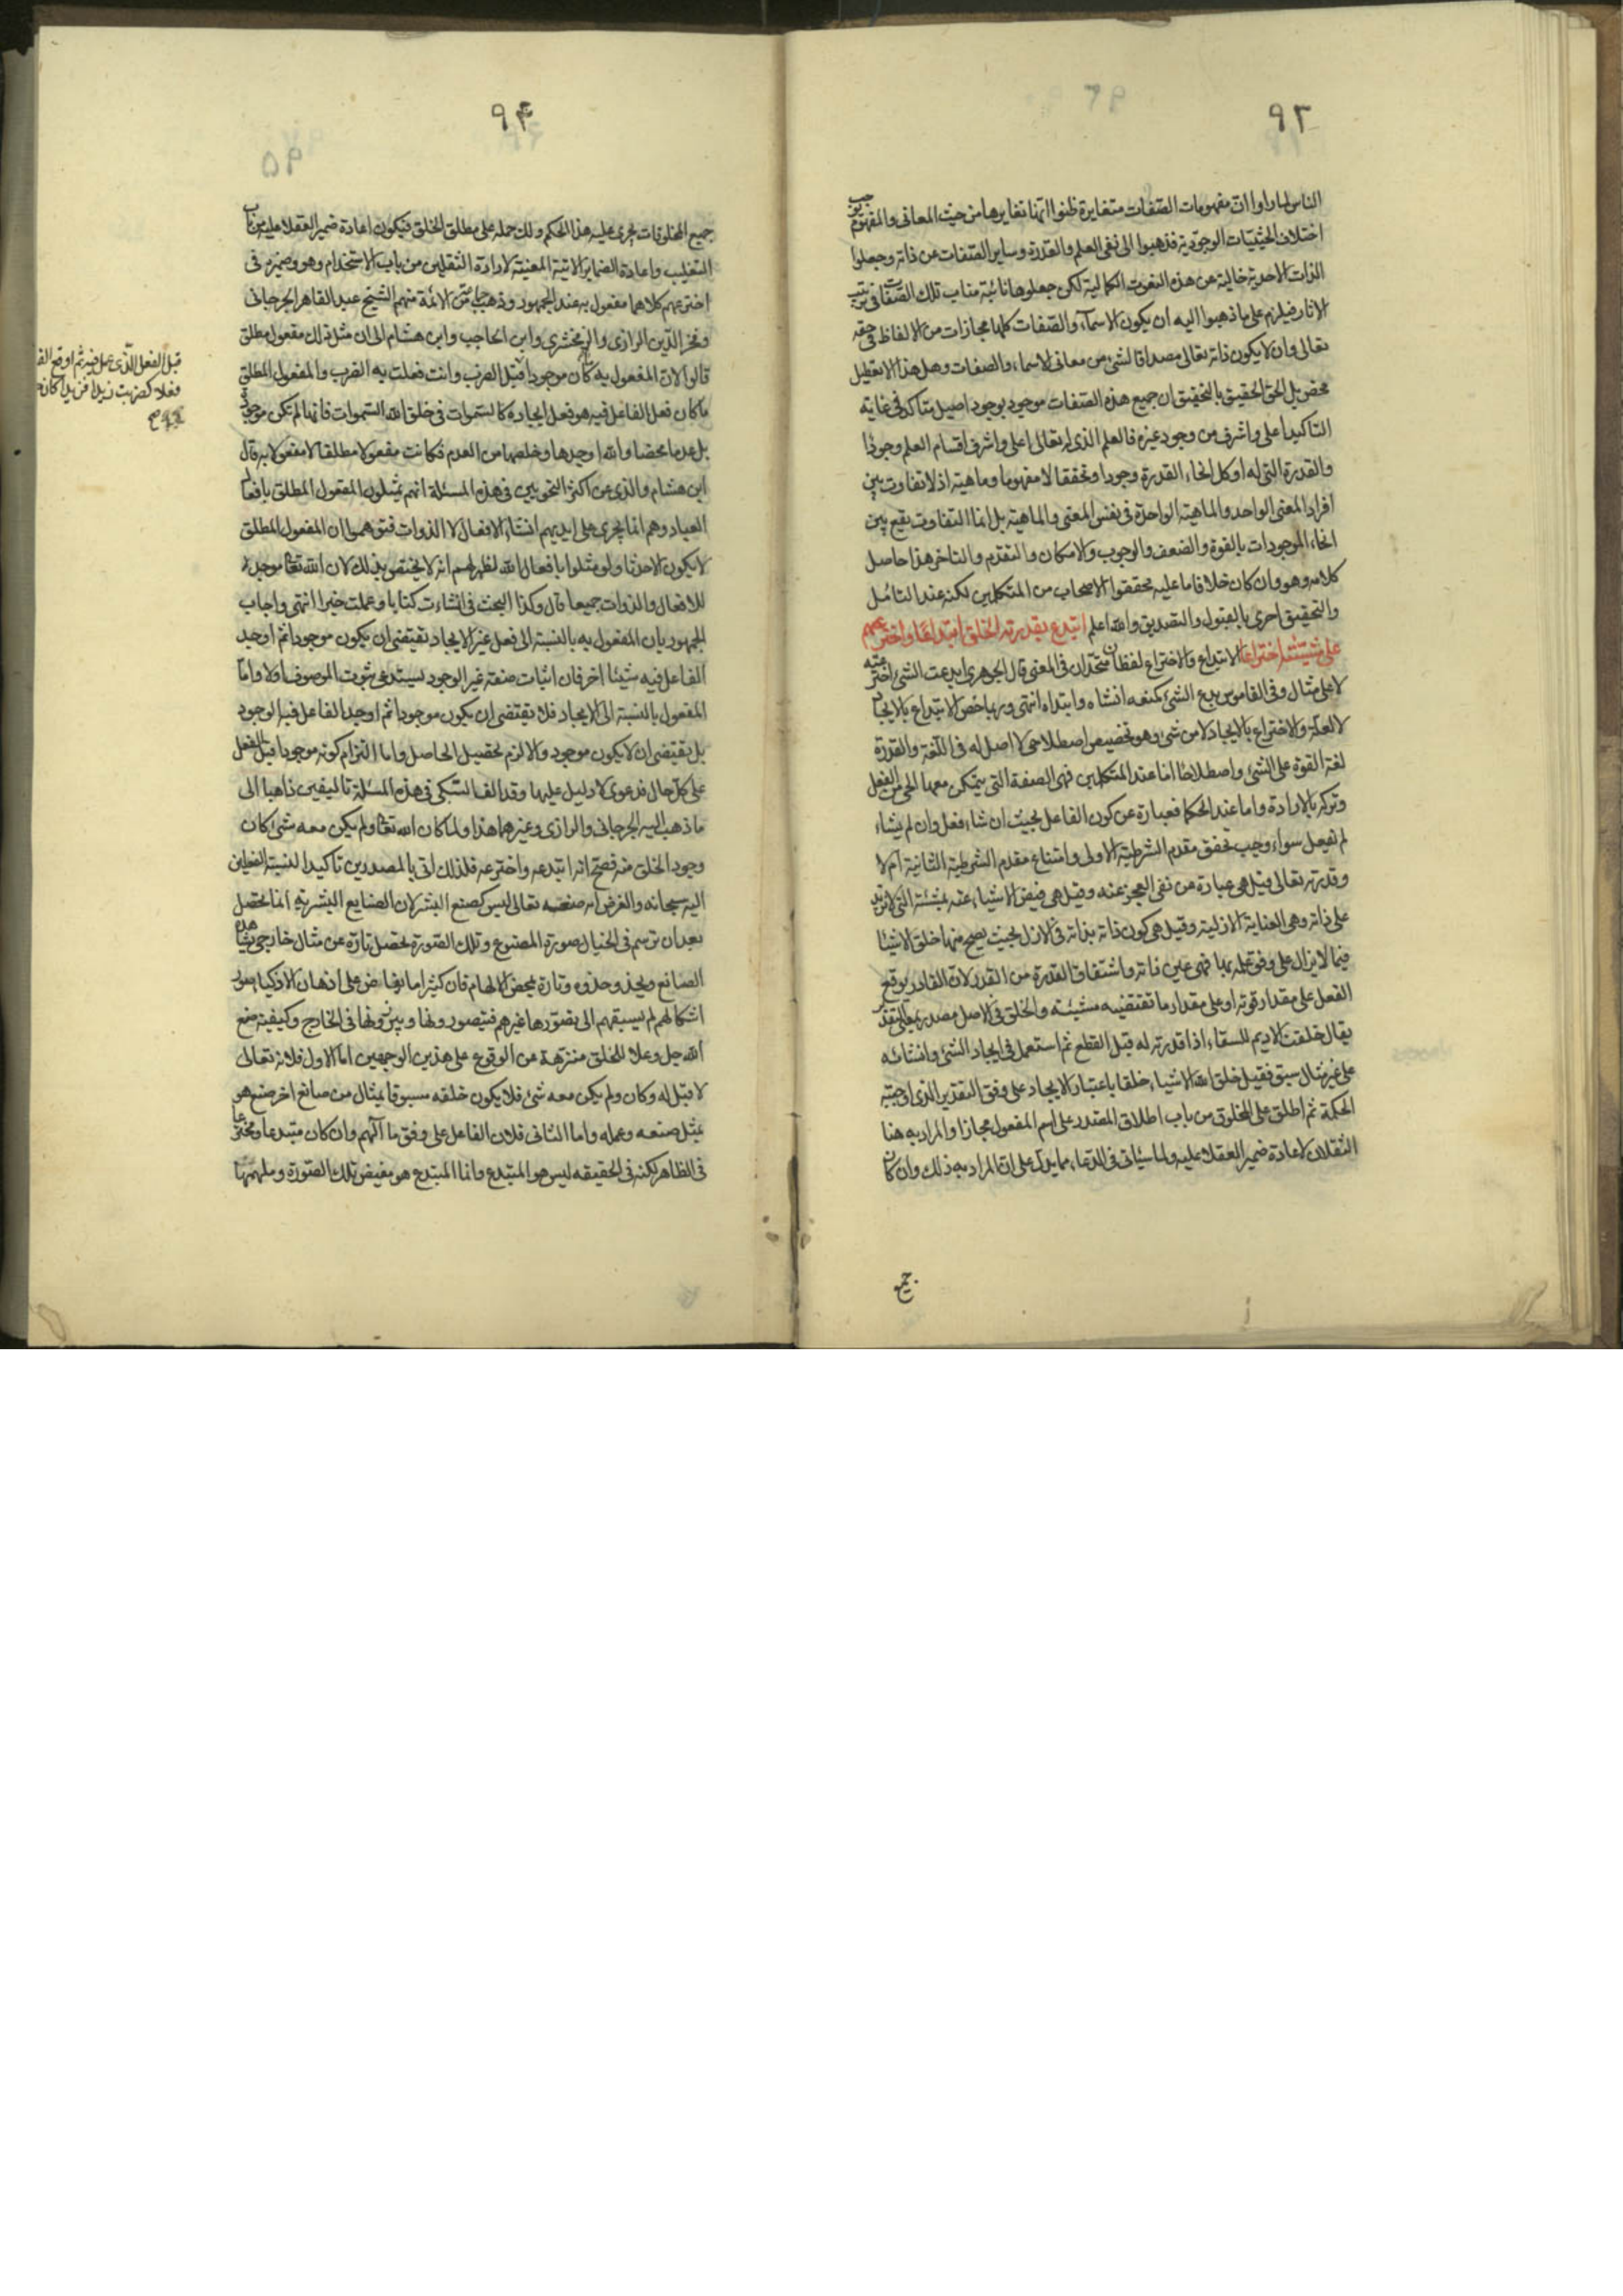 ٩٣
الناس لما راوا ان مفهومات الصفات متغايرة ظنوا ان تغايرها من حيث المعانى والمفهوم يوجب
اختلاف الحيثيات الوجودية فذهبوا الى نفى العلم والقدرة وساير الصفات عن ذاته وجعلوا
الذات الاحدية خالية عن هذه النعوت الكمالية لكن جعلوها نائبة مناب تلك الصفات فى ترتب
الاثار فيلزم على ما ذهبوا اليه ان يكون الاسمآء والصفات كلها مجازات من الالفاظ فى حقه
تعالى وان لا يكون ذاته تعالى مصداقا لشئ من معانى الاسماء والصفات وهل هذا الا تعطيل
محض بل الحق الحقيق بالتحقيق ان جميع هذه الصفات موجود بوجود اصيل متاكد فى غاية
التاكيد اعلى واشرف من وجود غيره فالعلم الذى له تعالى اعلى واشرف اقسام العلم وجودًا
والقدرة التى له اوكل انحاء القدرة وجودا وتحققا لا مفهوما وماهية اذ لا تفاوت بين
افراد المعنى الواحد والماهية الواحدة فى نفس المعنى والماهية بل انما التفاوت يقع بين
انحاء الموجودات بالقوة والضعف والوجوب والامكان والتقدم والتاخر هذا حاصل
كلامه وهو وان كان خلاف ما عليه محققوا الاصحاب من المتكلمين لكنه عند التامل
والتحقيق احرى بالقبول والتصديق والله اعلم ابتدع بقدرته الخلق ابتداعًا واخترعهم
على مشيئته اختراعا الابتداع والاختراع لفظان متحدان فى المعنى قال الجوهرى ابدعت الشئ اخترعته
لا على مثال وفى القاموس بدع الشئ كمنعه انشاه وابتداه انتهى وربما خص الابتداع بالايجاد
لا لعلة والاختراع بالايجاد لا من شئ وهو تخصيص اصطلاحى لا اصل له فى اللغة والقدرة
لغة القوة على الشئ واصطلاحًا اما عند المتكلمين فهى الصفة التى يتمكن معها الحى من الفعل
وتركه بالارادة واما عند الحكما فعبارة عن كون الفاعل بحيث ان شاء فعل وان لم يشاء
لم يفعل سواء وجب تحقق مقدم الشرطية الاولى وامتناع مقدم الشرطية الثانية ام لا
وقدرته تعالى قيل هى عبارة عن نفى العجز عنه وقيل هى فيض الاشياء عنه بمشيئته التى لا تزيد
على ذاته وهى العناية الازلية وقيل هى كون ذاته بذاته فى الازل بحيث يصح منها خلق الاشيئا
فيما لا يزال على وفق علمه بها فهى عين ذاته واشتقاق القدرة من القدر لان القادر يوقع
الفعل على مقدار قوته او على مقدار ما تقتضيه مشيئته والخلق فى الاصل مصدر بمعنى التقدير
يقال خلقت الاديم للسقاء اذا قدرته له قبل القطع ثم استعمل فى ايجاد الشئ وانشائه
على غير مثال سبق فقيل خلق الله الاشياء خلقا باعتبار الايجاد على وفق التقدير الذى اوجبته
الحكمة ثم اطلق على المخلوق من باب اطلاق المصدر على اسم المفعول مجازا والمراد به هنا
الثقلان لاعادة ضمير العقلاء عليه ولما سيئاتى فى الدعاء مما يدل على ان المراد به ذلك وان كان
جميع
٩۴
٩۵
جميع المخلوقات يجرى عليه هذا الحكم ولك حمله على مطلق الخلق فيكون اعادة ضمير العقلا عليه من باب
التغليب واعادة الضماير الاتية المعنية لارادة الثقلين من باب الاستخدام وهو وضميره فى
اخترعهم كلاهما مفعول به عند الجمهور وذهب جماعة من الائمة منهم الشيخ عبد القاهر الجرجانى
وفخر الدين الرازى والزمخشرى وابن الحاجب وابن هشام الى ان مثل ذلك مفعول مطلق
قالوا لان المفعول به كان موجودا قبل الضرب وانت فعلت به الضرب والمفعول المطلق
ما كان فعل الفاعل فيه هو فعل ايجاده كالسموات فى خلق الله السموات فانها لم تكن موجودة
بل عدما محضا والله اوجدها وخلصها من العدم فكانت مفعولا مطلقا لا مفعولا به قال
ابن هشام والذى عن اكثر النحويين فى هذه المسئلة انهم يمثلون المفعول المطلق بافعال
العباد وهم انما يجرى على ايديهم انشاء الافعال لا الذوات فتوهموا ان المفعول المطلق
لا يكون الا حدثا ولو مثلوا بافعال الله لظهر لهم انه لا يختص بذلك لان الله تعالى موجد
للافعال والذوات جميعا قال وكذا البحث فى انشاءت كتابا وعملت خيرا انتهى واجاب
الجمهور بان المفعول به بالنسبة الى فعل غير الايجاد تقيتضى ان يكون موجودا ثم اوجد
الفاعل فيه شيئا اخر فان اثبات صفة غير الوجود يستدعى ثبوت الموصوف اولا واما
المفعول بالنسبة الى الايجاد فلا يقتضى ان يكون موجودا ثم اوجد الفاعل فيه الوجود
بل يقتضى ان لا يكون موجود والا لزم تحصيل الحاصل واما التزام كونه موجودا قبل الفعل
على كل حال فدعوى لا دليل عليها وقد الف السبكى فى هذه المسئلة تاليفين ذاهبا الى
ما ذهب اليه الجرجانى والرازى وغيرهما هذا ولما كان الله تعالى ولم يكن معه شئ كان
وجود الخلق منه فصح انه ابتدعه واخترعه فلذلك اتى بالمصدرين تاكيدا لنسبة الفعلين
اليه سبحانه والغرض ان صنعه تعالى ليس كصنع البشر لان الصنايع البشرية انما تحصل
بعد ان ترسم فى الخيال صورة المصنوع وتلك الصورة تحصل تارة عن مثال خارجى يشاهده
الصانع ويحذو حذوه وتارة بمحض الالهام فان كثيرا ما يفاض على اذهان الاذكياء صور
اشكال لم يسبقهم الى تصورها غيرهم فيتصورونها ويبرزونها فى الخارج وكيفية صنع
الله جل وعلا للخلق منزهة عن الوقوع على هذين الوجهين اما الاول فلانه تعالى
لا قبل له وكان ولم يكن معه شئ فلا يكون خلقه مسبوقا بمثال من صانع اخر صنع هو
بمثل صنعه وعمله واما الثانى فلان الفاعل على وفق ما الهم وان كان مبتدعا ومخترعا
فى الظاهر لكنه فى الحقيقه ليس هو المبتدع وانما المبتدع هو مفيض تلك الصورة وملهمها
قبل الفعل الذى عمل فيه ثم اوقع
فعلا كضربت زيدا فزيدا كان